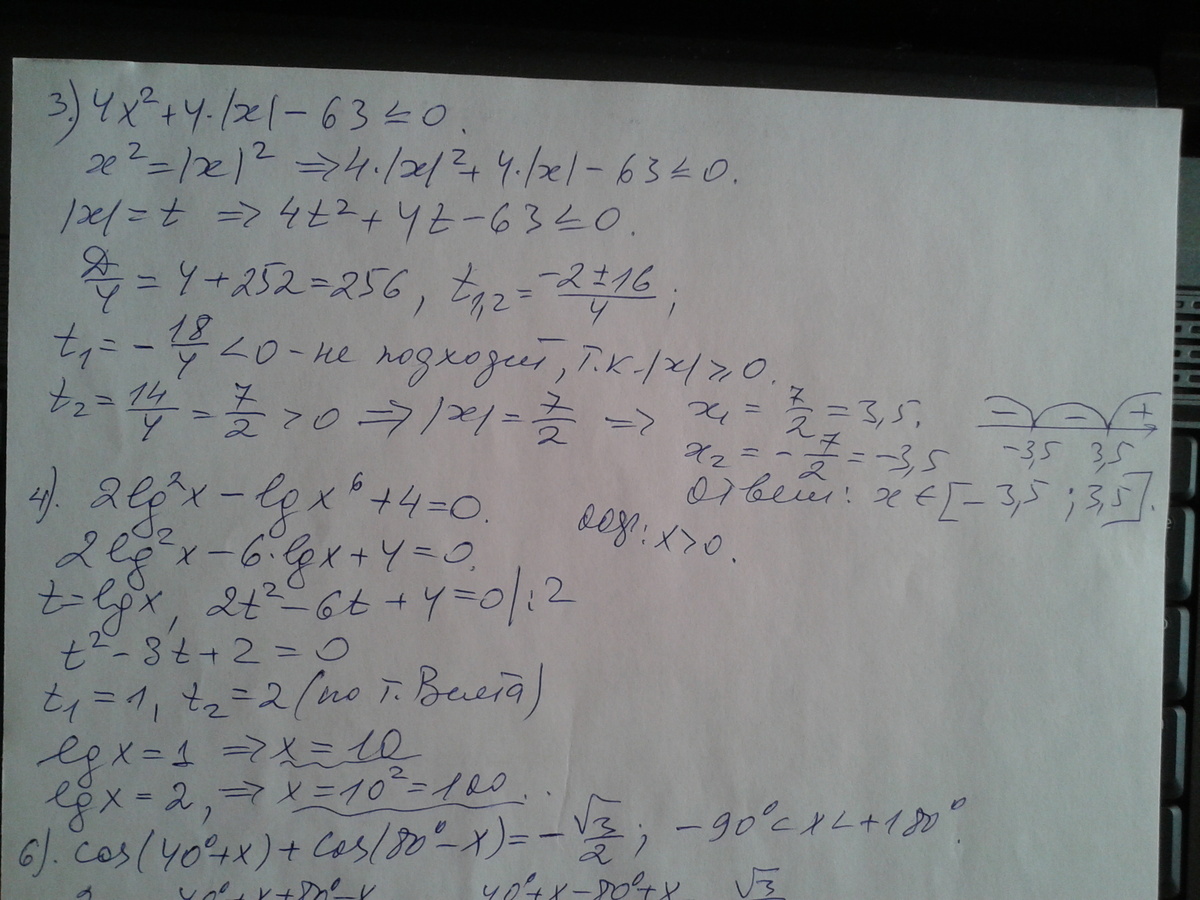 3.) 4x² + 4·|x| − 63 ≤ 0.
x² = |x|² ⇒ 4·|x|² + 4·|x| − 63 ≤ 0.
|x| = t ⇒ 4t² + 4t − 63 ≤ 0.
D/4 = 4 + 252 = 256, t₁,₂ = (−2 ± 16)/4;
t₁ = −18/4 < 0 - не подходит, т.к. |x| ≥ 0.
t₂ = 14/4 = 7/2 > 0 ⇒ |x| = 7/2 ⇒ x₁ = 7/2 = 3,5.
x₂ = −7/2 = −3,5
− − +
−3,5 3,5
Ответ: x ∈ [−3,5 ; 3,5].
4). 2lg²x − lgx⁶ + 4 = 0. ООУ: x > 0.
2lg²x − 6·lgx + 4 = 0.
t = lgx, 2t² − 6t + 4 = 0 |:2
t² − 3t + 2 = 0
t₁ = 1, t₂ = 2 (по т. Виета)
lgx = 1 ⇒ x = 10
lgx = 2, ⇒ x = 10² = 100.
6). cos(40° + x) + cos(80° − x) = −√3/2; −90° < x < +180°.
40° + x + 80° − x 40° + x − 80° + x √3